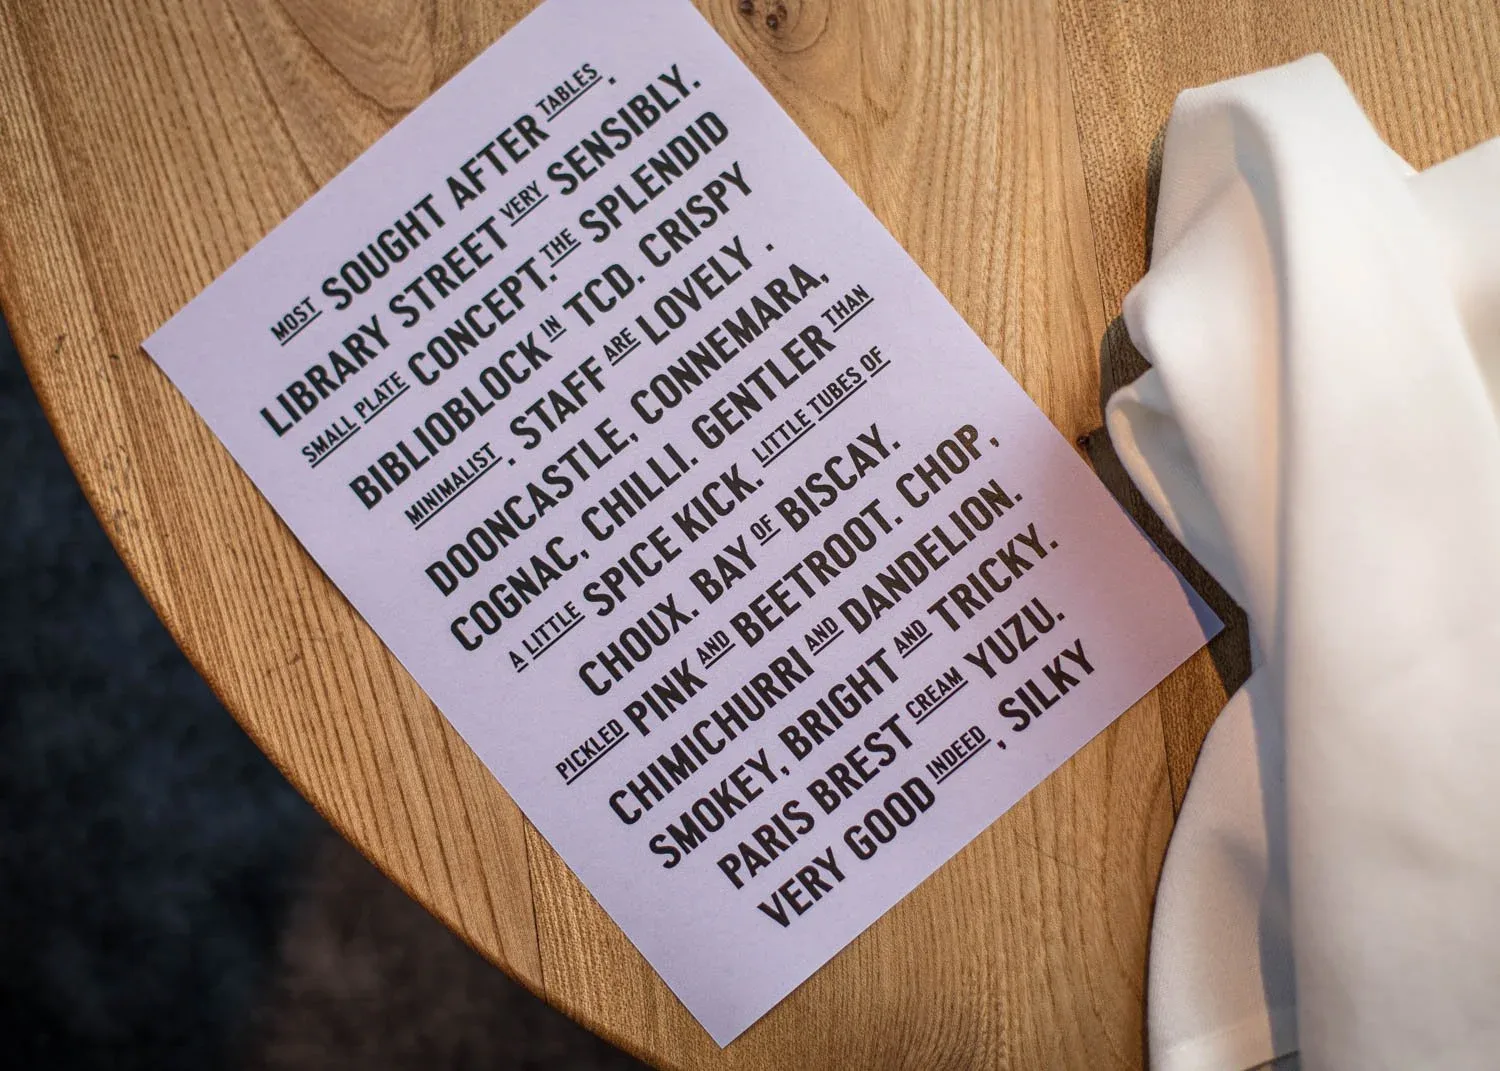 MOST SOUGHT AFTER TABLES.
LIBRARY STREET VERY SENSIBLY.
SMALL PLATE CONCEPT. THE SPLENDID
BIBLIOBLOCK IN TCD. CRISPY
MINIMALIST. STAFF ARE LOVELY.
DOONCASTLE, CONNEMARA,
COGNAC, CHILLI. GENTLER THAN
A LITTLE SPICE KICK. LITTLE TUBES OF
CHOUX. BAY OF BISCAY.
PICKLED PINK AND BEETROOT. CHOP,
CHIMICHURRI AND DANDELION.
SMOKEY, BRIGHT AND TRICKY.
PARIS BREST CREAM YUZU.
VERY GOOD INDEED, SILKY